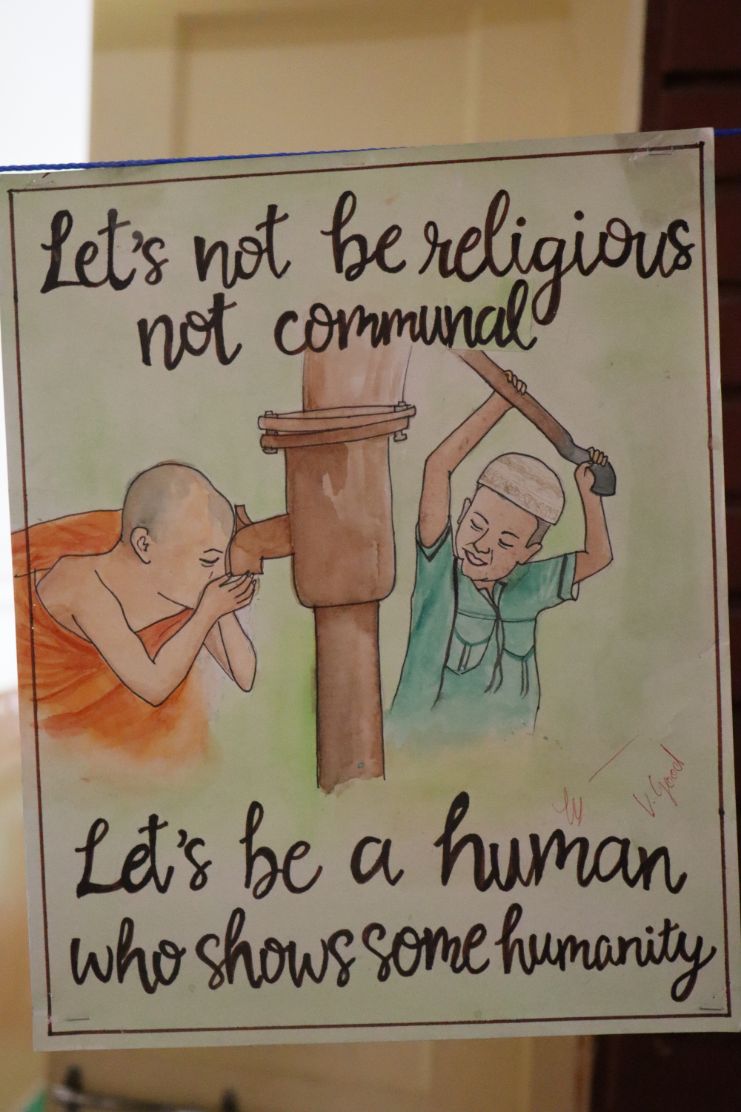 Let's not be religious
not communal
V. Good
Let's be a human
who shows some humanity